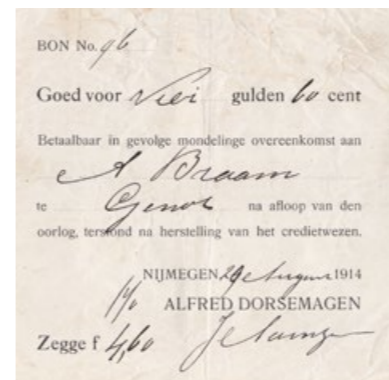 BON No. 96
Goed voor Vier gulden 60 cent
Betaalbaar in gevolge mondelinge overeenkomst aan
A Braam
te na afloop van den
oorlog, terstond na herstelling van het credietwezen.
NIJMEGEN 29 1914
ALFRED DORSEMAGEN
Zegge f 4,60